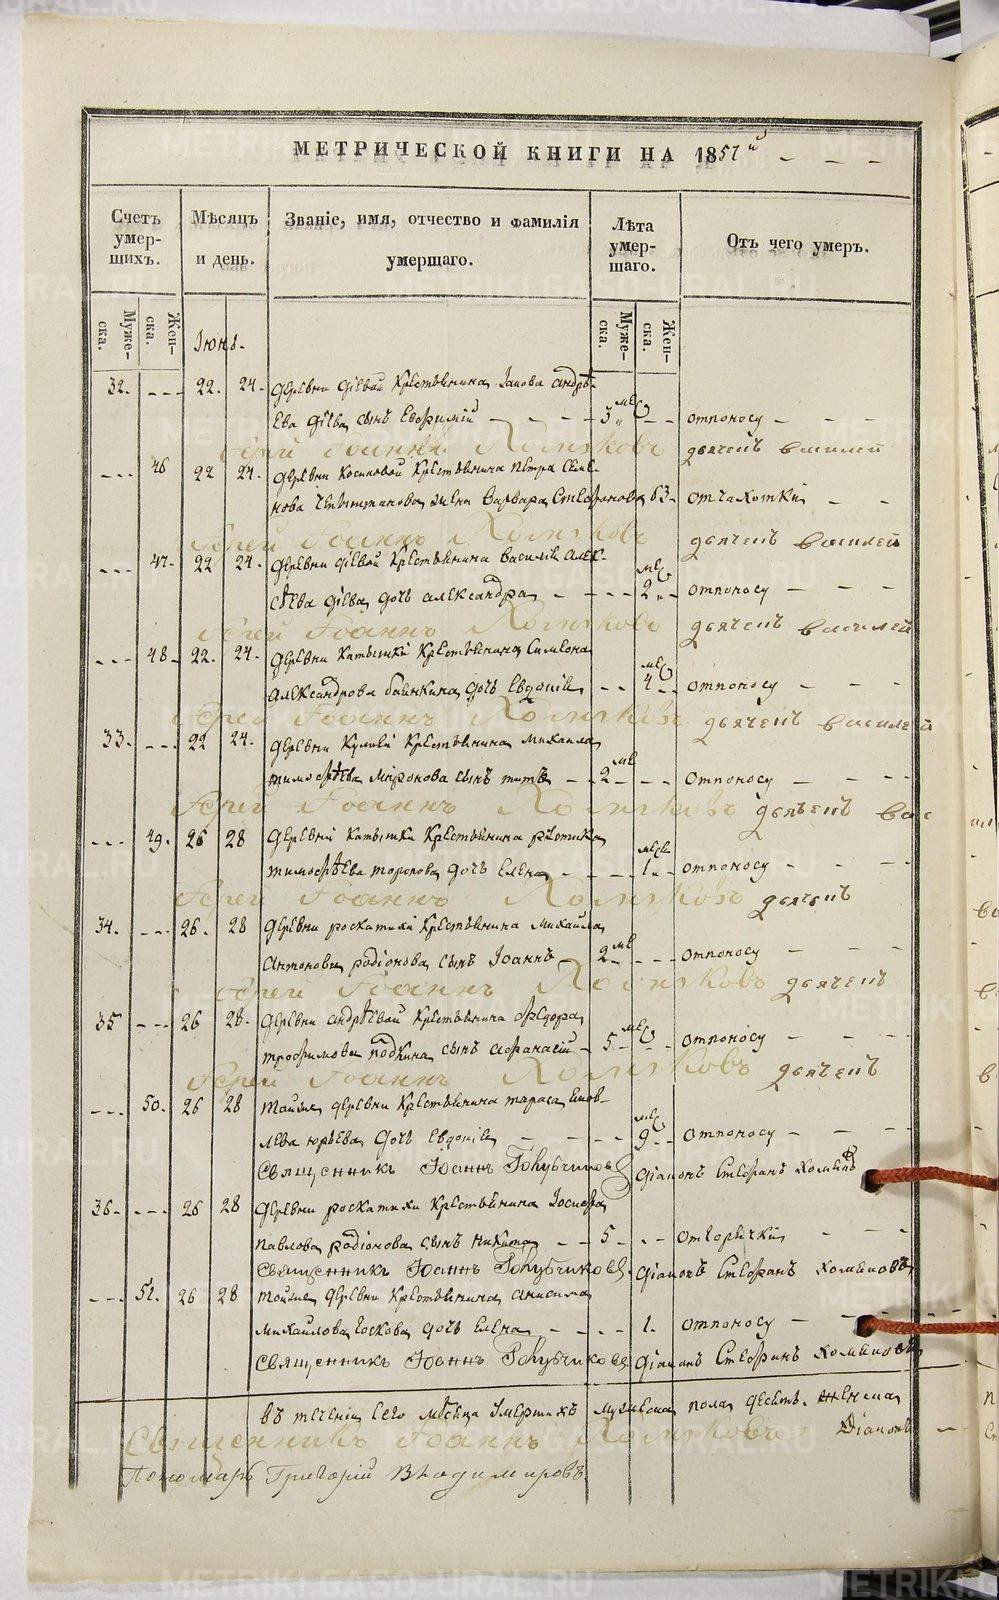 МЕТРИЧЕСКОЙ КНИГИ НА 1851й
Счетъ умер- шихъ.
Мѣсяцъ и день.
Званіе, имя, отчество и фамилія умершаго.
Лѣта умер- шаго.
Отъ чего умеръ.
Муже- ска.
Жен- ска.
Муже- ска.
Жен- ска.
Іюнь.
32. 22. 24. деревни крестьянина андрѣ-
ева сынъ Евфимій 3 отпоносу
Іоаннъ Хомяковъ дьячекъ василей
46 22 24. деревни крестьянина петра семе-
нова жена Варвара Стефанова 63 отчахотки
Іерей Іоаннъ Хомяковъ дьячекъ василей
47. 22 24. деревни крестьянина василія алек-
сѣева дочь александра 2 отпоносу
Іерей Іоаннъ Хомяковъ дьячекъ василей
48. 22. 24. деревни крестьянина Симеона
александрова дочь Евдокія 4 отпоносу
Іерей Іоаннъ Хомяковъ дьячекъ василей
33. 22 24. деревни крестьянина михаила
тимофѣева миронова сынъ титъ 2 отпоносу
Іерей Іоаннъ Хомяковъ дьячекъ вас
49. 26 28 деревни крестьянина
тимофѣева торопова дочь елена 1 отпоносу
Іерей Іоаннъ Хомяковъ дьячекъ
34. 26. 28 деревни роскатихи крестьянина михаила
антонова радіонова сынъ Іоаннъ 2 отпоносу
Іерей Іоаннъ Хомяковъ дьячекъ
35 26 28. деревни андрѣевой крестьянина федора
трофимова сынъ афанасій 5 отпоносу
Іерей Іоаннъ Хомяковъ дьячекъ
50. 26 28 тойже деревни крестьянина тараса
юрьева дочь Евдокія 9 отпоносу
Священникъ Іоаннъ Голубчиковъ діаконъ Стефанъ
36. 26 28 деревни роскатихи крестьянина Іосифа
павлова радіонова сынъ никита 5 отгорячки
Священникъ Іоаннъ Голубчиковъ діаконъ Стефанъ
51. 26 28 тойже деревни крестьянина анисима
михайлова дочь елена 1. отпоносу
Священникъ Іоаннъ Голубчиковъ діаконъ Стефанъ
въ теченіи сего мѣсяца умершихъ мужеска пола десять. женска
Священникъ Іоаннъ Хомяковъ Діаконъ
Пономарь Григорій Владимировъ.
METRIKI.GASO-URAL.RU